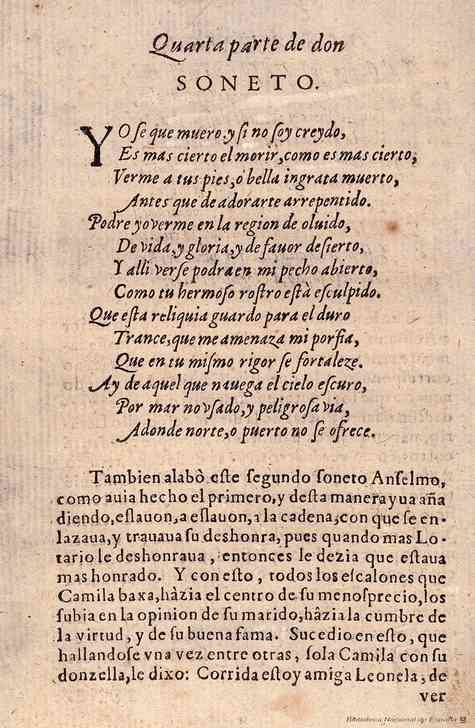 Quarta parte de don
SONETO.
YO se que muero, y si no soy creydo,
Es mas cierto el morir, como es mas cierto,
Verme a tus pies, o bella ingrata muerto,
Antes que de adorarte arrepentido.
Podre yo verme en la region de oluido,
De vida, y gloria, y de fauor desierto,
Y alli verse podra en mi pecho abierto,
Como tu hermoso rostro està esculpido.
Que esta reliquia guardo para el duro
Trance, que me amenaza mi porfia,
Que en tu mismo rigor se fortaleze.
Ay de aquel que nauega el cielo escuro,
Por mar no vsado, y peligrosa via,
Adonde norte, o puerto no se ofrece.
Tambien alabò este segundo soneto Anselmo,
como auia hecho el primero, y desta manera yua aña
diendo, eslauon, a eslauon, a la cadena, con que se en-
lazaua, y trauaua su deshonra, pues quando mas Lo-
tario le deshonraua, entonces le dezia que estaua
mas honrado. Y con esto, todos los escalones que
Camila baxa, hàzia el centro de su menosprecio, los
subia en la opinion de su marido, hàzia la cumbre de
la virtud, y de su buena fama. Sucedio en esto, que
hallandose vna vez entre otras, sola Camila con su
donzella, le dixo: Corrida estoy amiga Leonela, de
ver
Biblioteca Nacional de España